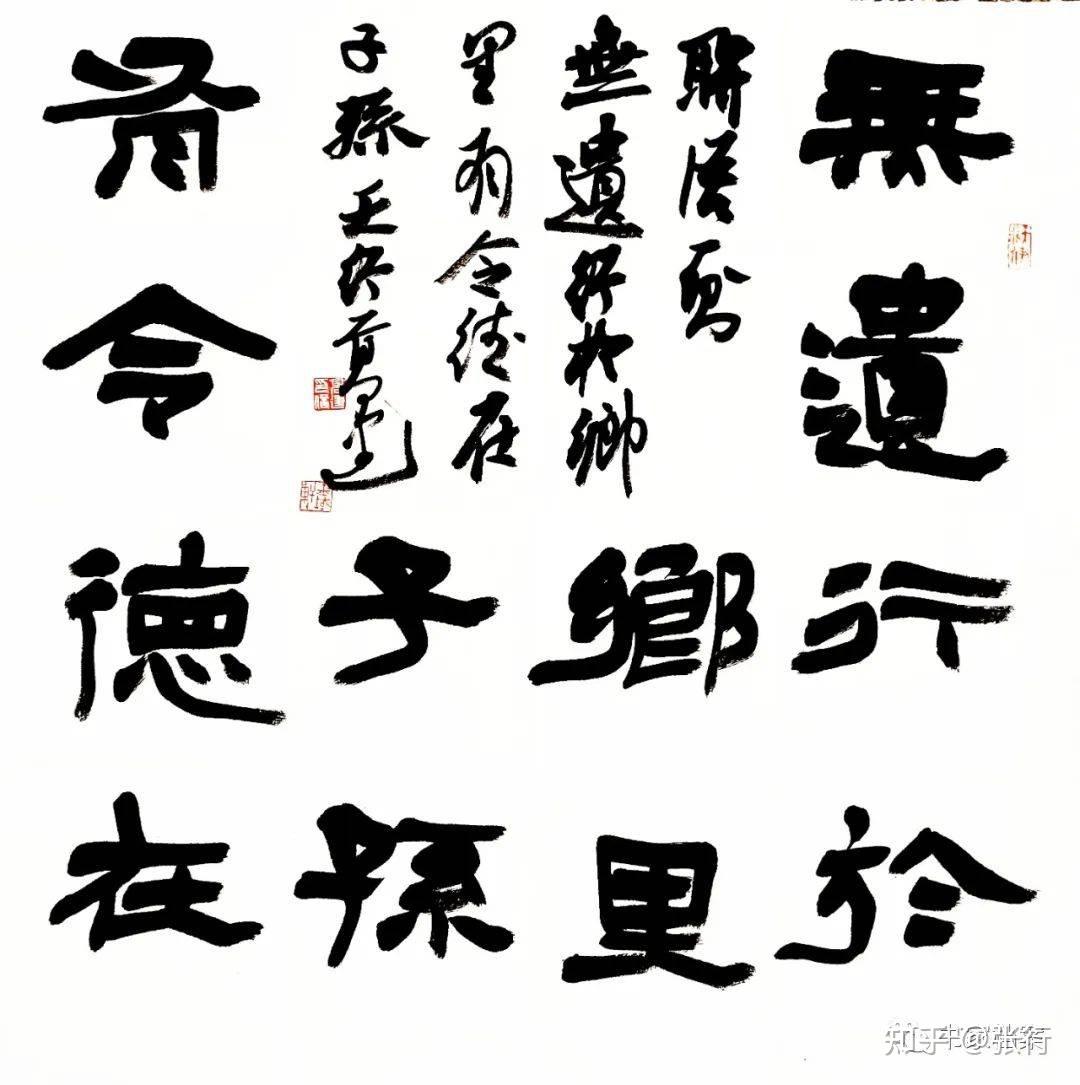 無遺行於
鄉里
有令德在
子孫
聯語為
無遺行於鄉
里有令德在
子孫壬寅
知乎 @张行